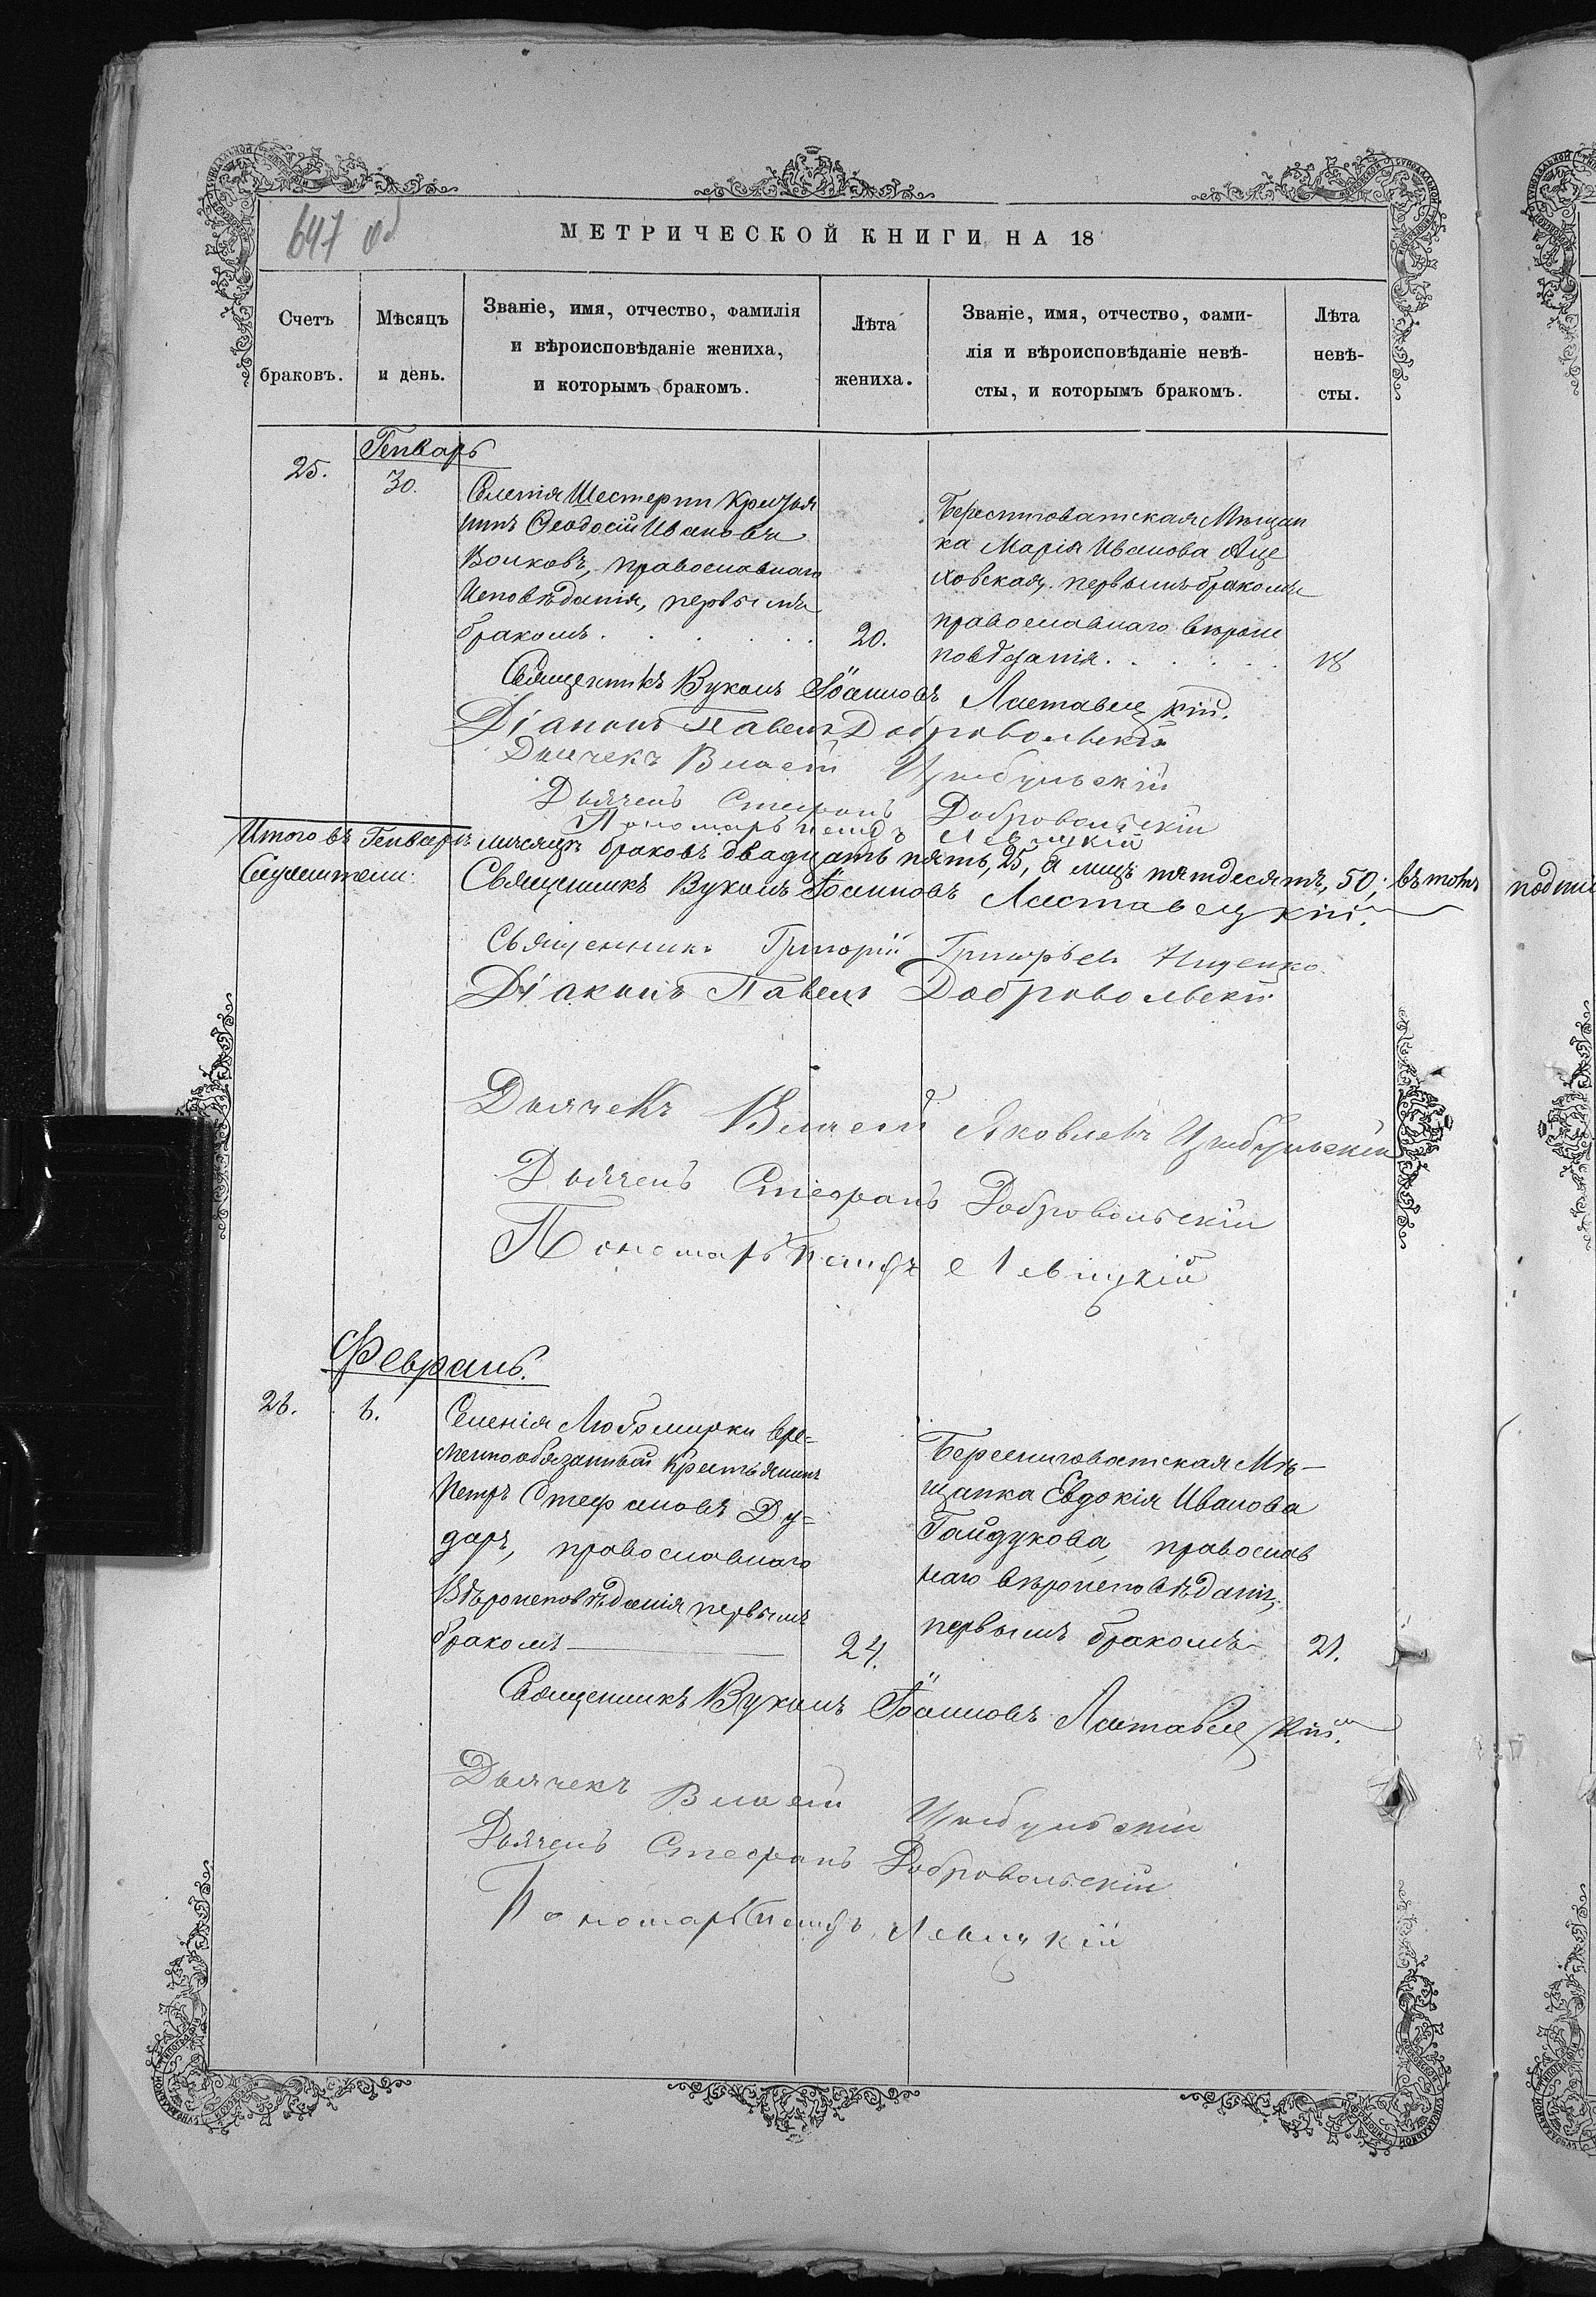 647 об
МЕТРИЧЕСКОЙ КНИГИ НА 18
Счетъ браковъ.
Мѣсяцъ и день.
Званіе, имя, отчество, фамилія
и вѣроисповѣданіе жениха,
и которымъ бракомъ.
Лѣта жениха.
Званіе, имя, отчество, фами-
лія и вѣроисповѣданіе невѣ-
сты, и которымъ бракомъ.
Лѣта невѣ-
сты.
Генварь
25.
30.
Селенія Шестерни Крестья
нинъ Ѳеодосій Ивановъ
Волковъ, православнаго
Исповѣданія, первымъ
бракомъ . . . . . .
20.
Береснѣговатская Мѣщан
ка Марія Иванова Яце
ховская, первымъ бракомъ
православнаго вѣроис
повѣданія . . . . .
18
Священникъ Вуколъ Іоанновъ Ластавецкій.
Діаконъ Павелъ Добровольскій
Дьячекъ Власій Цыбульскій
Дьячекъ Стефанъ Добровольскій
Пономарь Левицкій
Итого въ Генварѣ мѣсяцѣ браковъ двадцать пять, 25, а лицъ пятдесятъ, 50; въ томъ
подпи
Служители:
Священникъ Вуколъ Іоанновъ Ластавецкій.
Священникъ Григорій Григорьевъ Ищенко.
Діаконъ Павелъ Добровольскій
Дьячекъ Власій Яковлевъ Цыбульскій
Дьячекъ Стефанъ Добровольскій
Пономарь Левицкій
Февраль.
26.
6.
Селенія Любомирки Вре=
меннообязанный Крестьянинъ
Петръ Стефановъ Ду=
даръ, православнаго
Вѣроисповѣданія первымъ
бракомъ
24.
Береснѣговатская Мѣ-
щанка Евдокія Иванова
Гайдукова, православ
наго вѣроисповѣданія,
первымъ бракомъ
21.
Священникъ Вуколъ Іоанновъ Ластавецкій.
Дьячекъ Власій Цыбульскій
Дьячекъ Стефанъ Добровольскій
Пономарь Левицкій